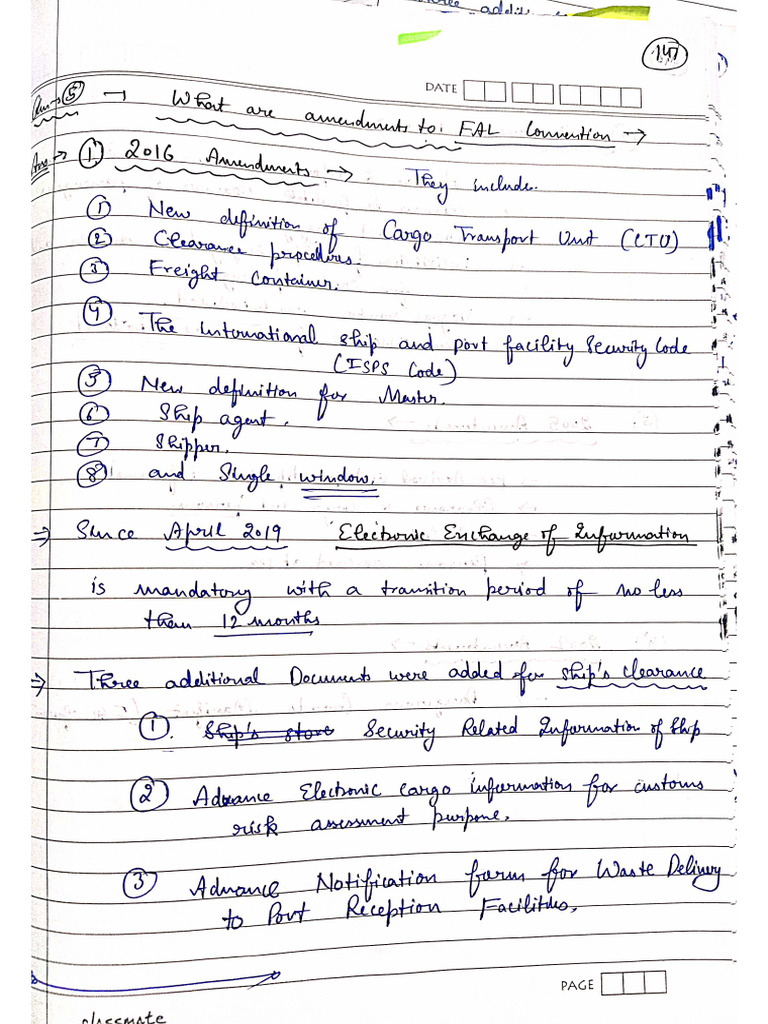 147
DATE
Que → ⑤ → What are amendments to FAL Convention →
Ans → ① 2016 Amendments → They include.
① New definition of Cargo Transport Unit (CTU)
② Clearance procedures.
③ Freight Container.
④ The International Ship and Port facility Security Code
(ISPS Code)
⑤ New definition for Master.
⑥ Ship agent.
⑦ Shipper.
⑧ and Single window.
⇒ Since April 2019 Electronic Exchange of Information
is mandatory with a transition period of no less
than 12 months
⇒ Three additional Documents were added for ship's clearance
①. Ship's store Security Related Information of Ship
② Advance Electronic cargo information for customs
risk assessment purpose.
③ Advance Notification form for Waste Delivery
to Port Reception Facilities.
PAGE
classmate